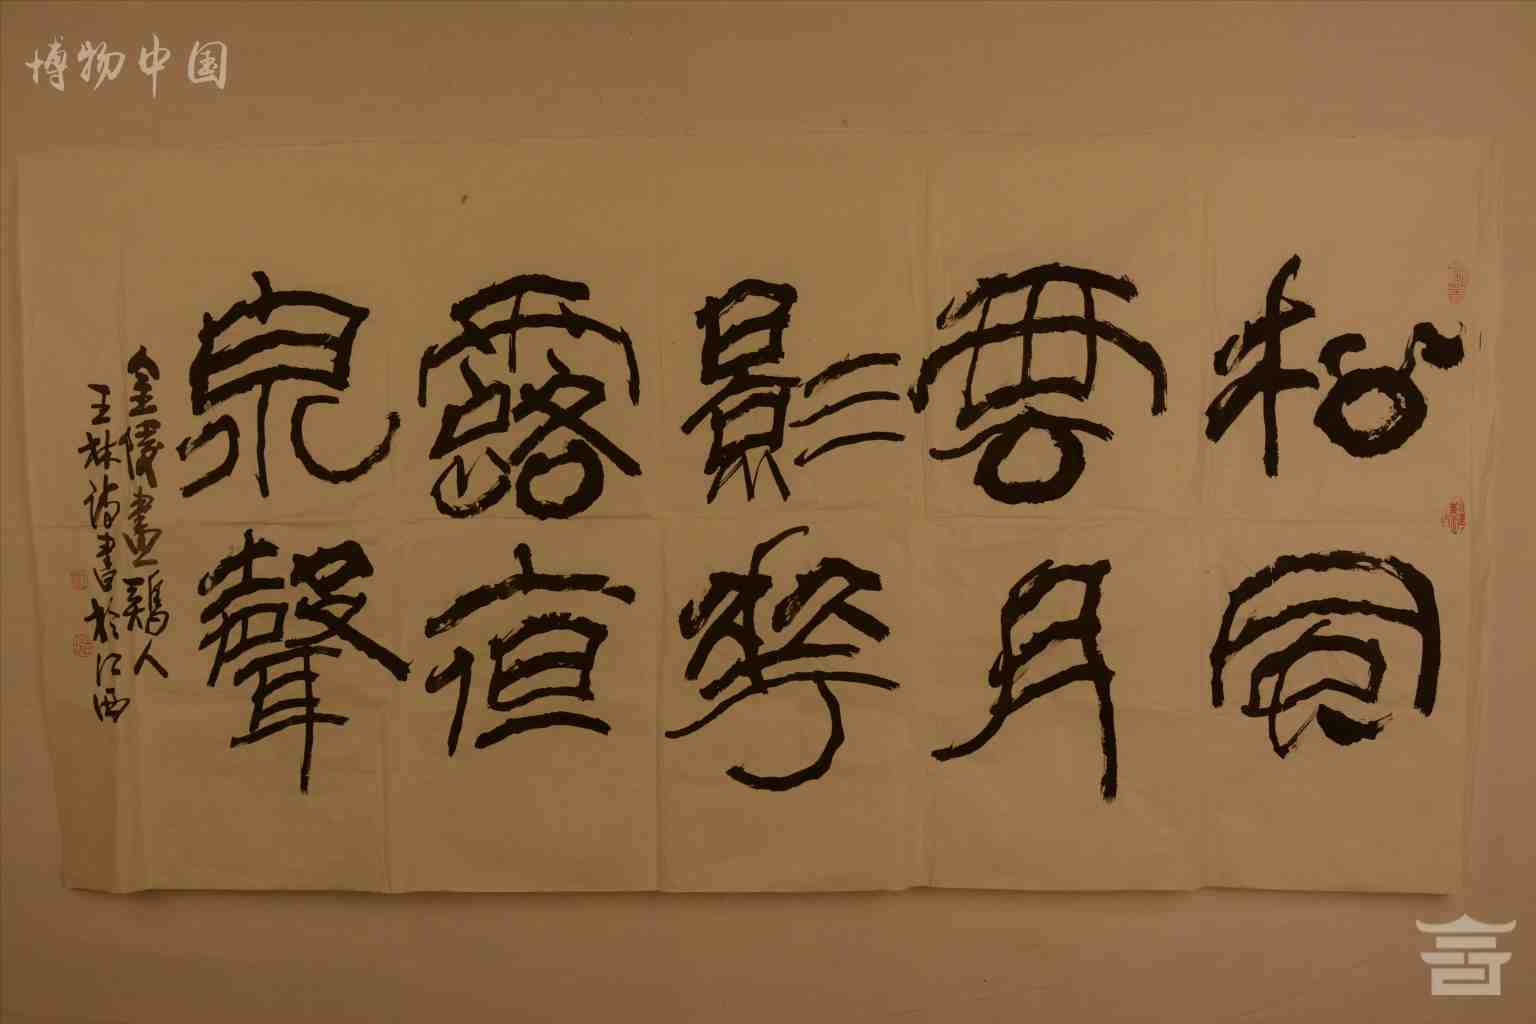 博物中国
松風
雲月
影華
露宿
泉聲
金陵畫鷄人
王林詩書於江西